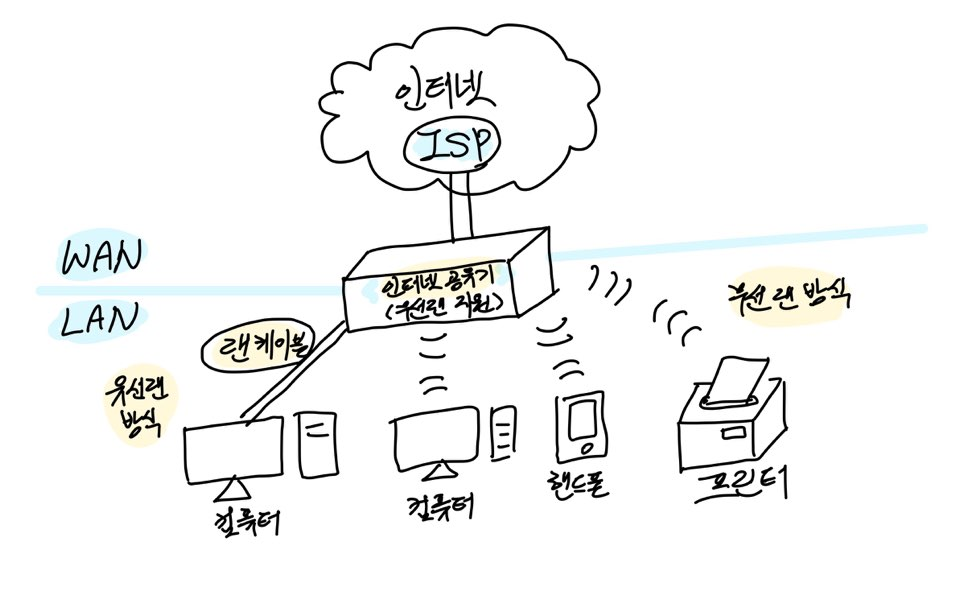 인터넷
ISP
WAN
LAN
인터넷 공유기
(무선랜 지원)
무선 랜 방식
랜케이블
유선랜
방식
컴퓨터
컴퓨터
핸드폰
프린터